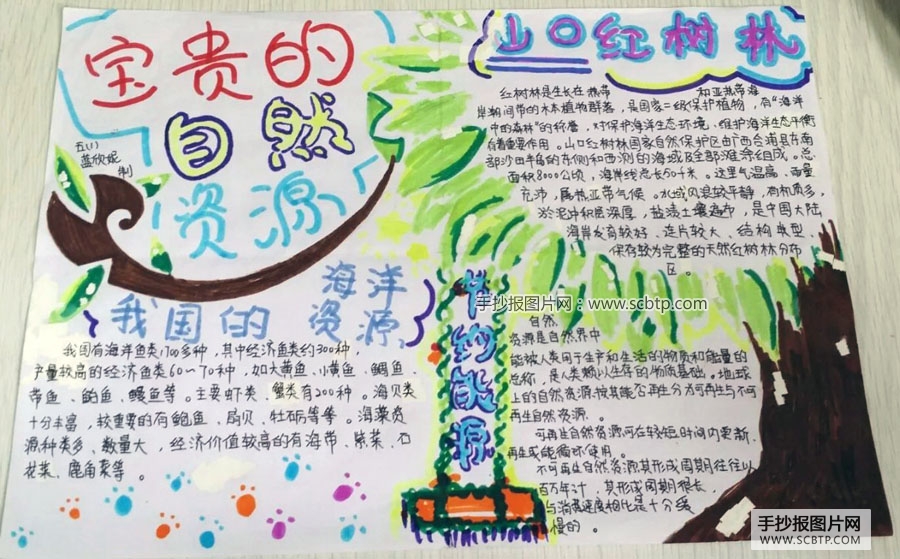 宝贵的
自然
资源
五(1)
蓝欣妮
制
山口红树林
红树林是生长在热带 和亚热带海
岸潮间带的木本植物群落，是国家二级保护植物，有“海洋
中的森林”的称誉，对保护海洋生态环境，维护海洋生态平衡
有着重要作用。山口红树林国家自然保护区由广西合浦县东南
部沙田半岛的东侧和西侧的海域及全部滩涂组成。总
面积8000公顷，海岸线总长50千米。这里气温高，雨量
充沛，属热亚带气候。水域风浪较平静，有机质多，
淤泥冲积层深厚，盐渍土壤遍布，是中国大陆
海岸发育较好、连片较大、结构典型、
保存较为完整的天然红树林分布
区。
我国的海洋
资源
我国有海洋鱼类1700多种，其中经济鱼类约300种，
产量较高的经济鱼类60～70种，如大黄鱼、小黄鱼、鲷鱼、
带鱼、鲐鱼、鳗鱼等。主要虾类、蟹类有200种。海贝类
十分丰富，较重要的有鲍鱼、扇贝、牡砺等等。海藻类资
源种类多、数量大，经济价值较高的有海带、紫菜、石
花菜、鹿角菜等。
节约能源
手抄报图片网：www.scbtp.com
自然
资源是自然界中
能被人类用于生产和生活的物质和能量的
总称，是人类赖以生存的物质基础。地球
上的自然资源，按其能否再生分为可再生与不可
再生自然资源。
可再生自然资源可在较短时间内更新、
再生或能循环使用。
不可再生自然资源其形成周期往往以
百万年计，其形成周期很长，
与消费速度相比是十分缓
慢的。
手抄报图片网
WWW.SCBTP.COM